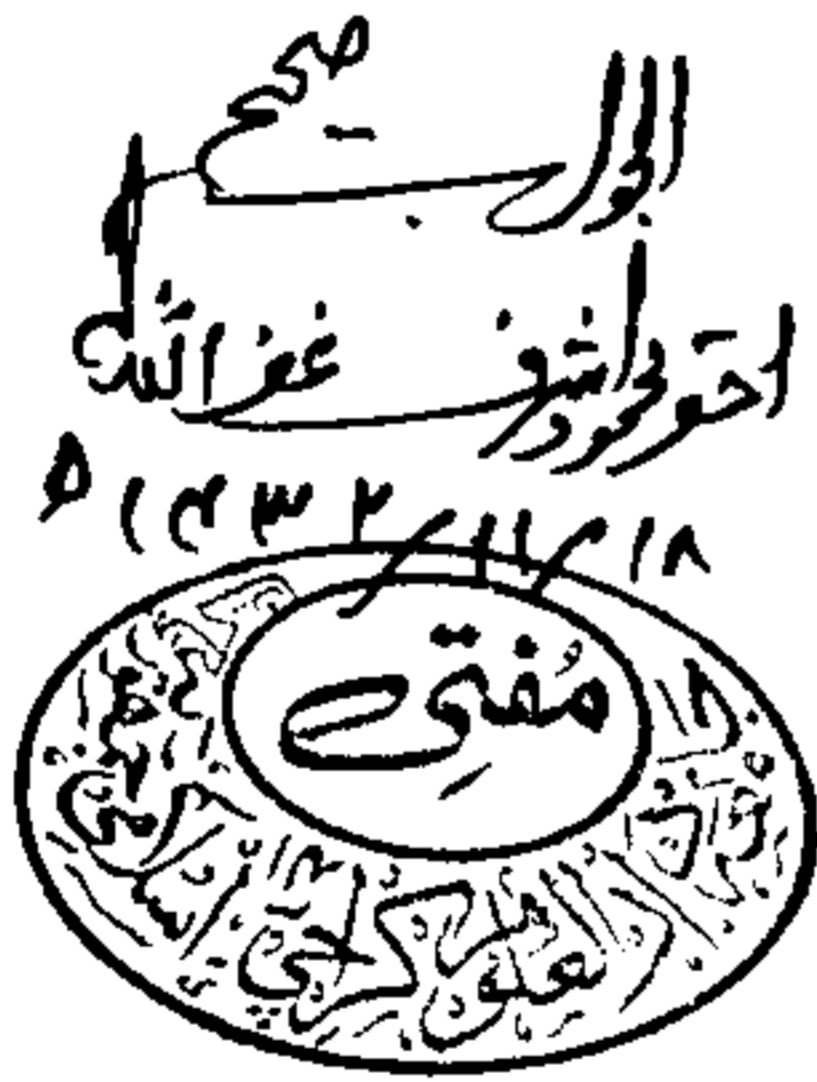 الجواب صحیح
احقر محمود اشرف غفر اللہ لہ
۱۸/۱۱/۱۴۳۲ھ
مُفتِی
دارالعلوم کراچی